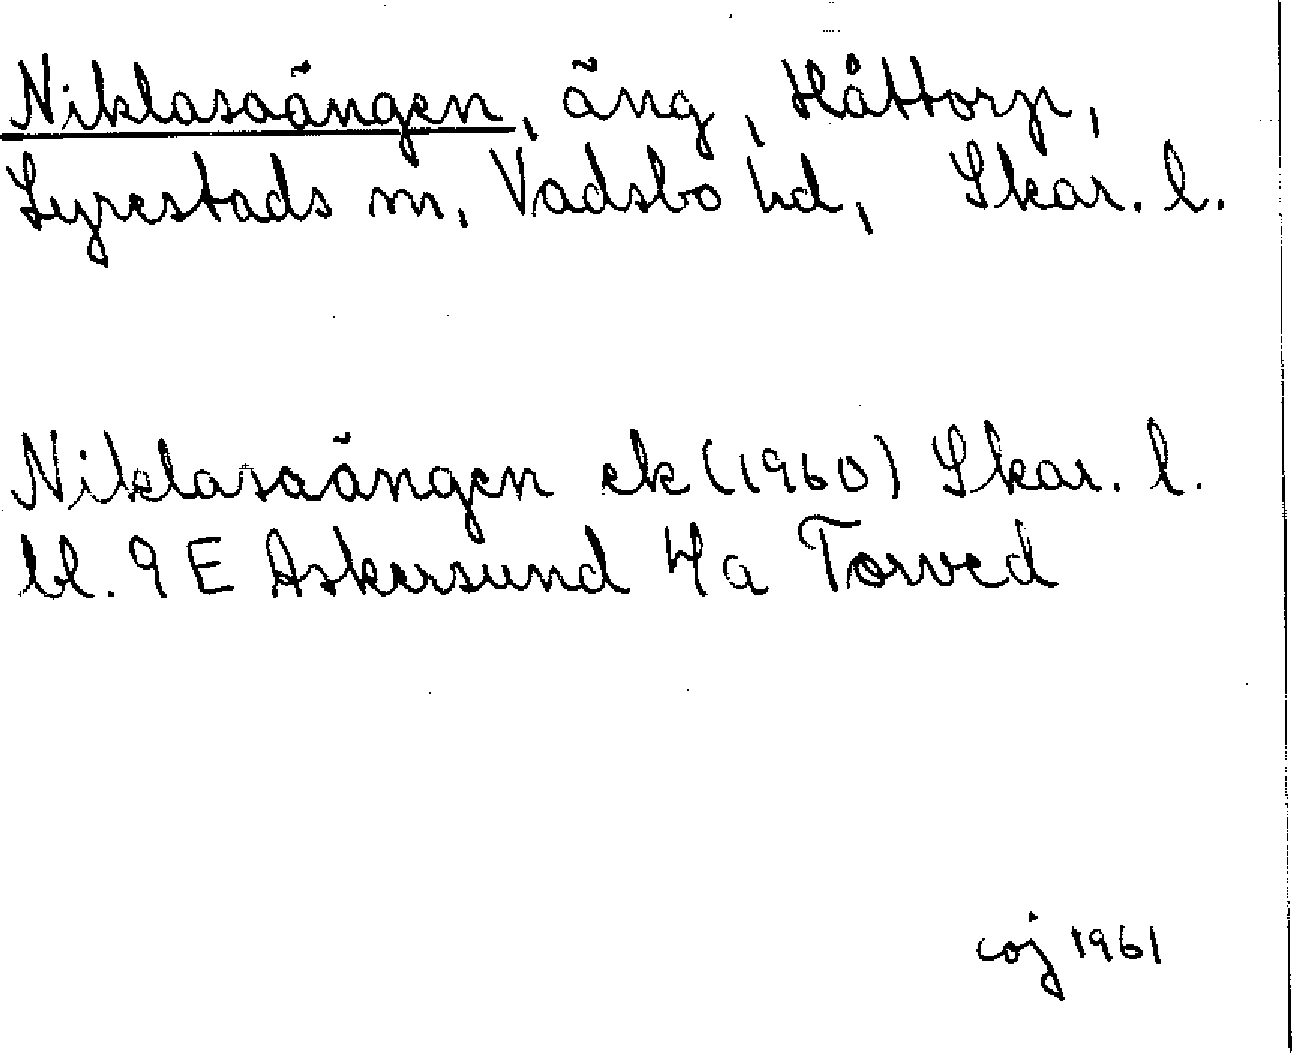 Niklasaängen, äng, Håttorp,
Lyrestads sn, Vadsbo hd, Skar. l.
Niklasaängen ek (1960) Skar. l.
bl. 9 E Askersund 4a Torved
coj 1961